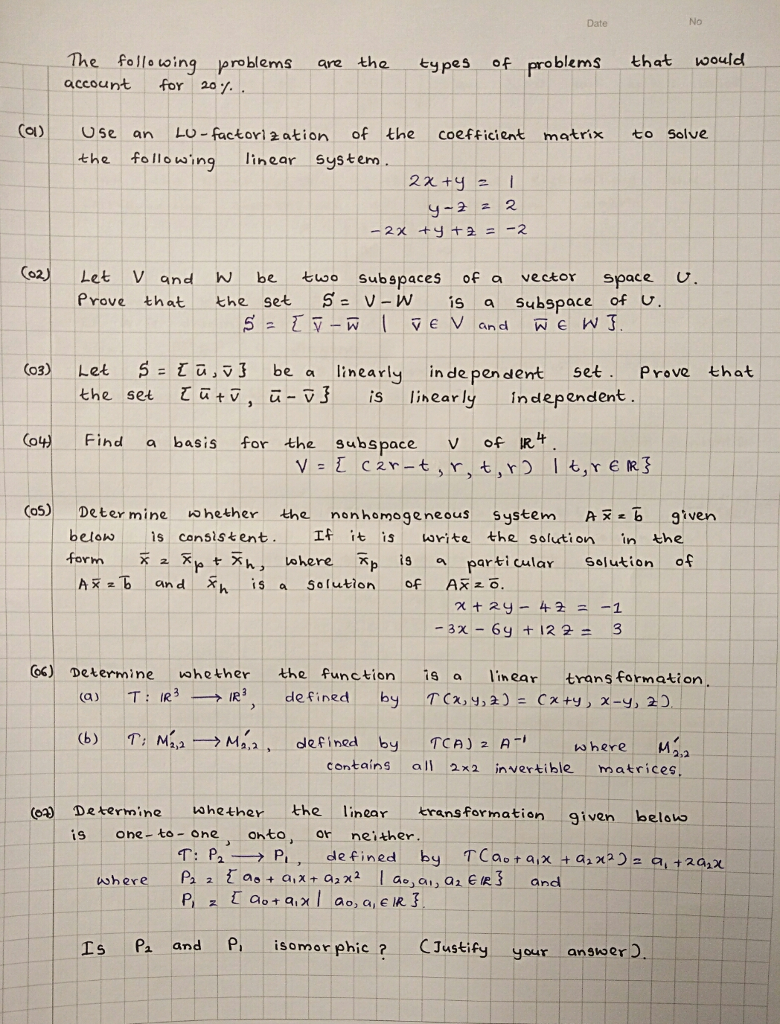 Date No
The following problems are the types of problems that would
account for 20%.
(01) Use an LU-factorization of the coefficient matrix to solve
the following linear system.
2x + y = 1
y - z = 2
-2x + y + z = -2
(02) Let V and W be two subspaces of a vector space U.
Prove that the set S = V - W is a subspace of U.
S = { v̄ - w̄ | v̄ ∈ V and w̄ ∈ W }.
(03) Let S = { ū, v̄ } be a linearly independent set. Prove that
the set { ū + v̄, ū - v̄ } is linearly independent.
(04) Find a basis for the subspace V of ℝ⁴.
V = { (2r-t, r, t, r) | t, r ∈ ℝ }
(05) Determine whether the nonhomogeneous system Ax̄ = b̄ given
below is consistent. If it is write the solution in the
form x̄ = x̄ₚ + x̄ₕ, where x̄ₚ is a particular solution of
Ax̄ = b̄ and x̄ₕ is a solution of Ax̄ = ō.
x + 2y - 4z = -1
-3x - 6y + 12z = 3
(06) Determine whether the function is a linear transformation.
(a) T: ℝ³ → ℝ³, defined by T(x, y, z) = (x+y, x-y, z).
(b) T: M′₂,₂ → M′₂,₂, defined by T(A) = A⁻¹ where M′₂,₂
contains all 2x2 invertible matrices.
(07) Determine whether the linear transformation given below
is one-to-one, onto, or neither.
T: P₂ → P₁, defined by T(a₀ + a₁x + a₂x²) = a₁ + 2a₂x
where P₂ = { a₀ + a₁x + a₂x² | a₀, a₁, a₂ ∈ ℝ } and
P₁ = { a₀ + a₁x | a₀, a₁ ∈ ℝ }.
Is P₂ and P₁ isomorphic? (Justify your answer).